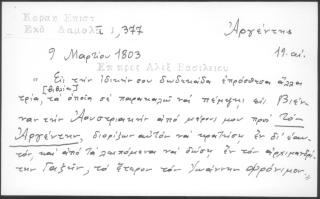 Κοραῆ Ἐπιστ
Ἐκδ Δαμαλᾶ I, 377
Ἀργέντης
9 Μαρτίου 1803
19 αἰ.
Ἐπ πρὸς Ἀλέξ Βασιλείου
"Εἰς τὴν ἰδικήν σου δωδεκάδα ἐπρόσθεσα ἄλλα
[βιβλία]
τρία, τὰ ὁποῖα σὲ παρακαλῶ νὰ πέμψῃς εἰς Βιέν-
ναν τὴν Ἀουστριακὴν ἀπὸ μέρους μου πρὸς τὸν
Ἀργέντην, διορίζων αὐτὸν νὰ κρατήσῃ ἓν δι' ἑαυ-
τόν, καὶ ἀπὸ τὰ λειπόμενα νὰ δώσῃ ἓν τὸν ἀρχιμανδρί-
την Γαζῆν, τὸ ἕτερον τὸν Ἰωάννην Φρόνιμον.